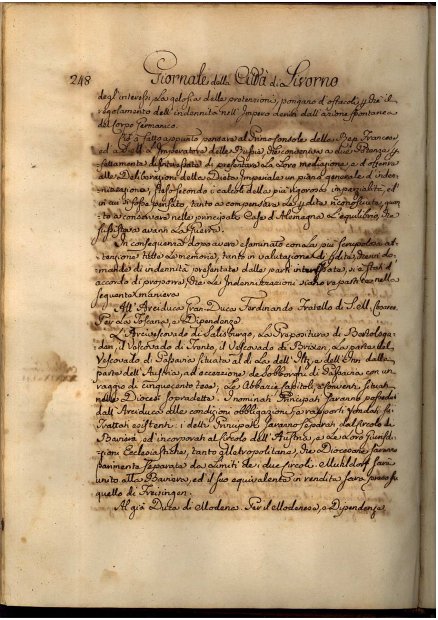 248 Giornale della Città di Livorno
degl'interessi, la gelosia delle pretenzioni, pongano d'ostacoli, che il
regolamento dell'indennità nell'Impero derivi dall'azione spontanea
del Corpo Germanico.
fatto appunto pensare al Primo Console della Rep. Francese,
ed a S. M. L'Imperatore delle Russie, che conveniva a due Potenze
fattamente di interessate di presentare la Loro mediazione, e d'offerire
alle Deliberazioni della Dieta Imperiale un piano generale d'inden-
nizzazione, steso secondo i calcoli della più rigorosa imparzialità, ed
in cui si sia pensato, tanto a compensare le perdite riconosciute, quan-
to a conservare nelle principali Case d'Alemagna L'equilibrio, che
sussisteva avanti La Guerra.
In conseguenza dopo avere esaminato con la più scrupolosa at-
tenzione tutte le memorie, tanto in valutazione di perdite, che in do-
mande di indennità presentate dalle parti interessate, si è stati d'
accordo di proporre, che Le Indennizzazioni siano ripartite nella
seguente maniera
All'Arciduca Gran-Duca Ferdinando Fratello di S. M. Cesarea
Per La Toscana, e Dipendenze
L'Arcivescovado di Salisburgo, La Prepositura di Bertolsga-
den, il Vescovado di Trento, il Vescovado di Brixen, La parte del
Vescovado di Passavia situata al di Là dell'Iltz, e dell'Enn dalla
parte dell'Austria, ad eccezione de' Sobborghi di Passavia con un
raggio di cinquecento tese; Le Abbazie, Capitoli, e Conventi situati
nelle Diocesi sopradette. I nominati Principati saranno posseduti
dall'Arciduca alle condizioni, obbligazioni, e rapporti fondati su'
Trattati esistenti: i detti Principati saranno separati dal Circolo di
Baviera, ed incorporati al Circolo dell'Austria, e Le Loro Giurisdi-
zioni Ecclesiastiche, tanto Metropolitane, che Diocesane saranno
parimente separate da Limiti dei due Circoli. Muhldorf sarà
unito alla Baviera, ed il suo equivalente in rendita sarà preso su
quello di Freisingen.
Al già Duca di Modena. Per il Modenese, e Dipendenze